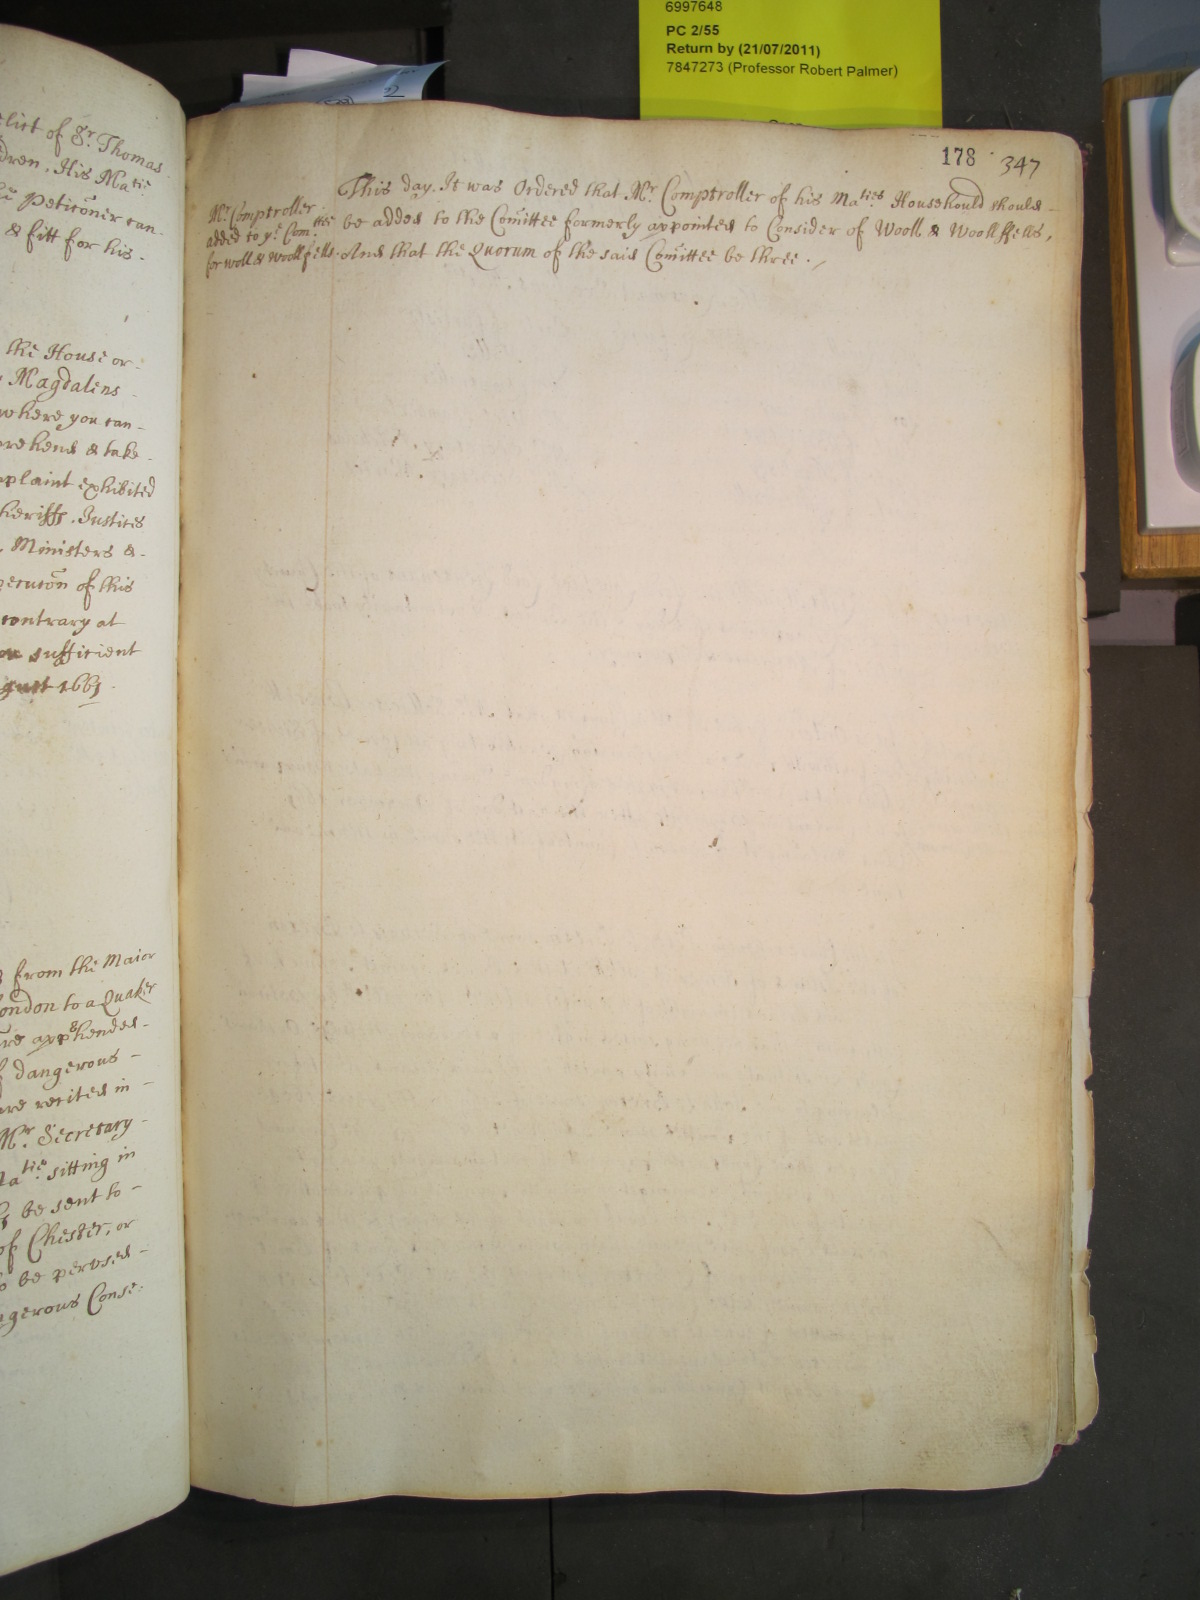 6997648
PC 2/55
Return by (21/07/2011)
7847273 (Professor Robert Palmer)
elict of Sr. Thomas
dren, His Matie
Peticõner can-
& fitt for his-
the House or-
Magdalens
where you can-
prehend & take-
plaint exhibited
heriffs, Justices
Ministers &-
ecucõn of this
contrary at
sufficient
gust 1661.
from the Maior
ondon to a Quaker
are apphended-
dangerous-
are recited in-
Mr. Secretary-
Matie. sitting in
be sent to-
of Chester, or
to be perused-
ngerous Conse-
178 347
Mr. Comptroller
added to ye. Comittee
for woll & woolfells.
This day. It was Ordered that Mr. Comptroller of his Maties Household should-
be added to the Comittee formerly appointed to Consider of Wooll & Woollffells,
And that the Quorum of the said Comittee be three.